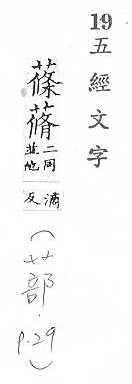 19五經文字
蓧蓨二同並他滌反（艹部．p.29）